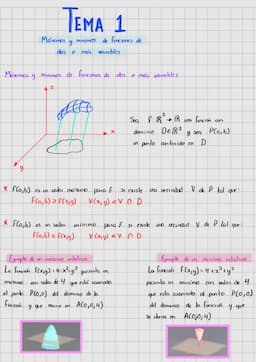 TEMA 1
Máximos y mínimos de funciones de
dos o más variables
Máximos y mínimos de funciones de dos o más variables
z
x
y
Sea f: ℝ² → ℝ una función con
dominio D∈ℝ² y sea P(a,b)
un punto contenido en D.
* f(a,b) es un valor máximo para f si existe una vecindad V de P tal que:
f(a,b) ≥ f(x,y) ∀(x,y) ∈ V ∩ D
* f(a,b) es un valor mínimo para f si existe una vecindad V de P tal que:
f(a,b) ≤ f(x,y) ∀(x,y) ∈ V ∩ D
Ejemplo de un máximo relativo
La función f(x,y)=4-x²-y² presenta un
máximo con valor de 4 que está asociado
al punto P(0,0) del dominio de la
función y que marca en A(0,0,4)
Ejemplo de un mínimo relativo
La función f(x,y)=4+x²+y²
presenta un máximo con valor de 4
que está asociado al punto P(0,0)
del dominio de la función y que
se ubica en A(0,0,4)